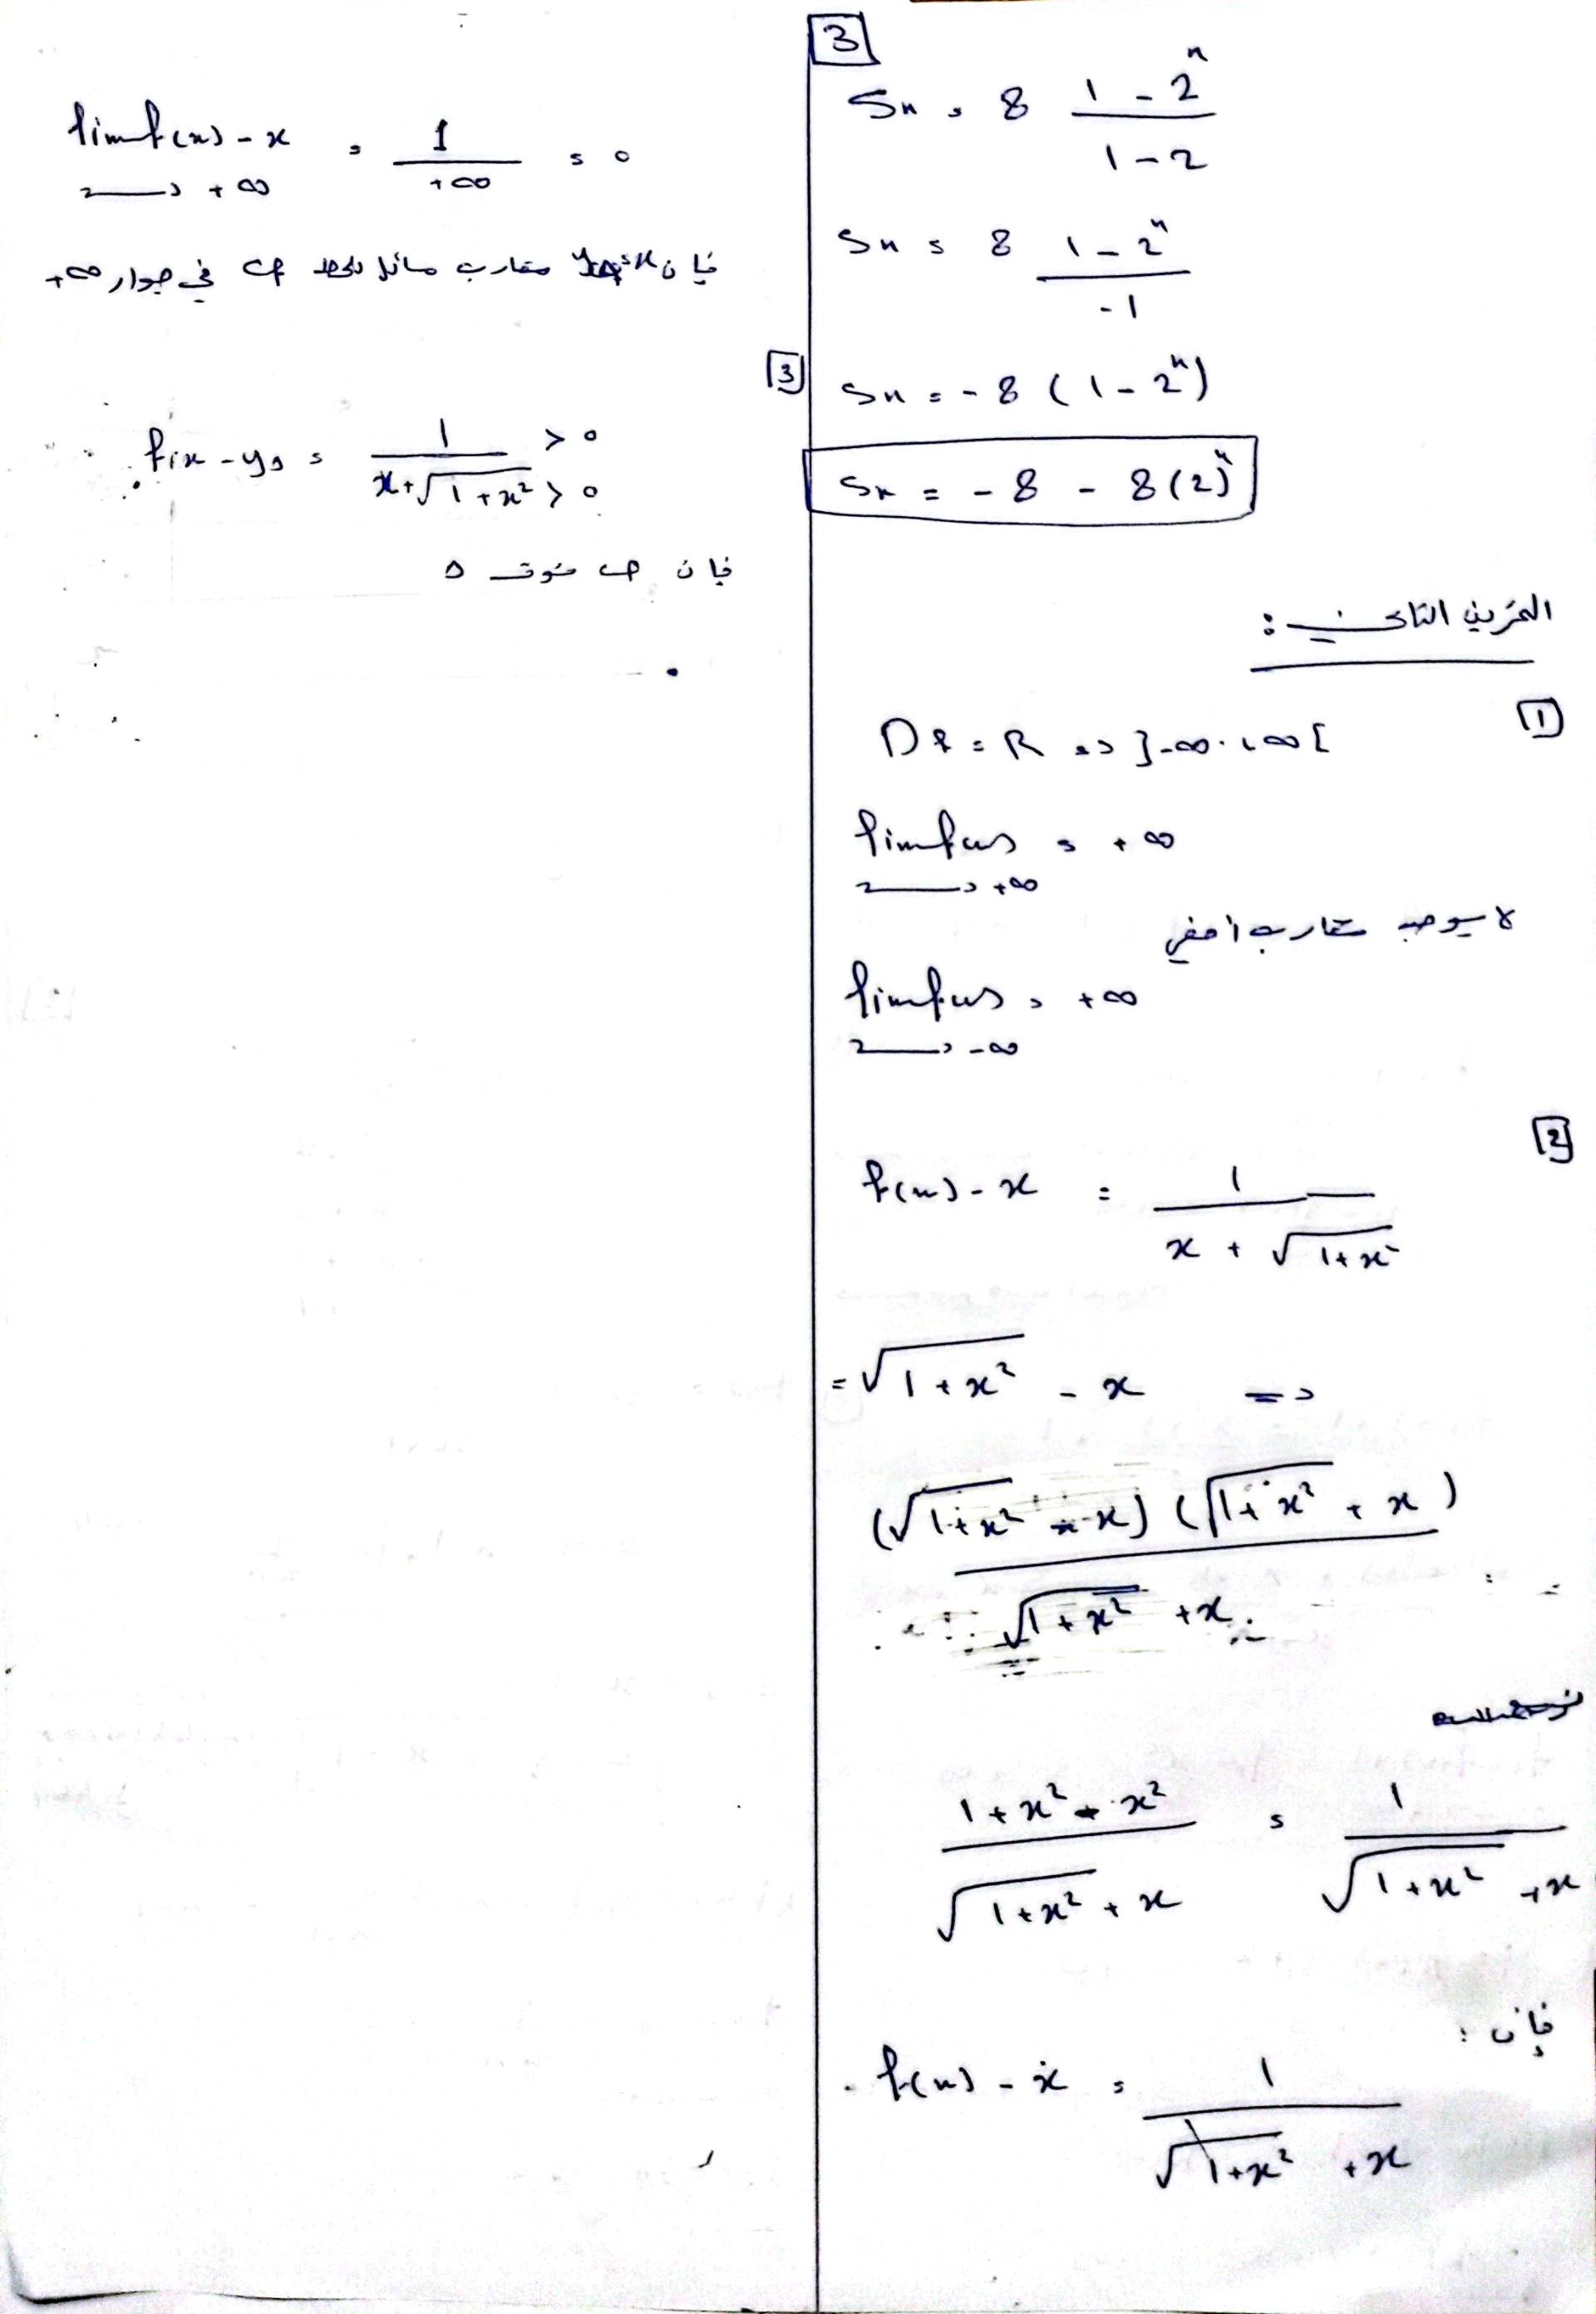 3
Sn = 8 (1 - 2^n) / (1 - 2)
Sn = 8 (1 - 2^n) / (-1)
Sn = -8 (1 - 2^n)
Sn = -8 - 8(2)^n
التمرين الثاني :
1
Df = R => ]-∞, +∞[
lim f(x) = +∞
x → +∞
لا يوجد مقارب افقي
lim f(x) = +∞
x → -∞
2
f(x) - x = 1 / (x + √(1+x²))
= √(1+x²) - x =>
(√(1+x²) - x) (√(1+x²) + x) / (√(1+x²) + x)
(1 + x² - x²) / (√(1+x²) + x) = 1 / (√(1+x²) + x)
فإن :
f(x) - x = 1 / (√(1+x²) + x)
lim f(x) - x = 1 / +∞ = 0
x → +∞
فإن y = x مقارب مائل للخط Cf في جوار +∞
3
f(x) - yΔ = 1 / (x + √(1+x²)) > 0 > 0
فإن Cf فوق Δ